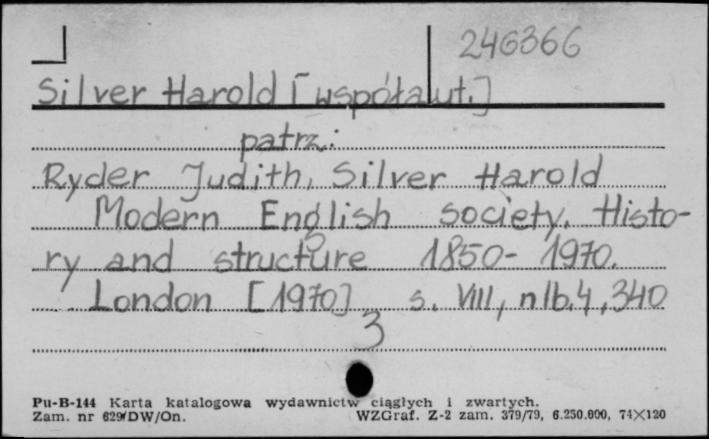 246366
Silver Harold [współaut.]
patrz:
Ryder Judith, Silver Harold
Modern English society. Histo-
ry and structure 1850-1970.
London [1970] s. VIII, nlb. 4, 340
3
Pu-B-144 Karta katalogowa wydawnictw ciągłych i zwartych.
Zam. nr 629/DW/On. WZGraf. Z-2 zam. 379/79, 6.250.000, 74×120